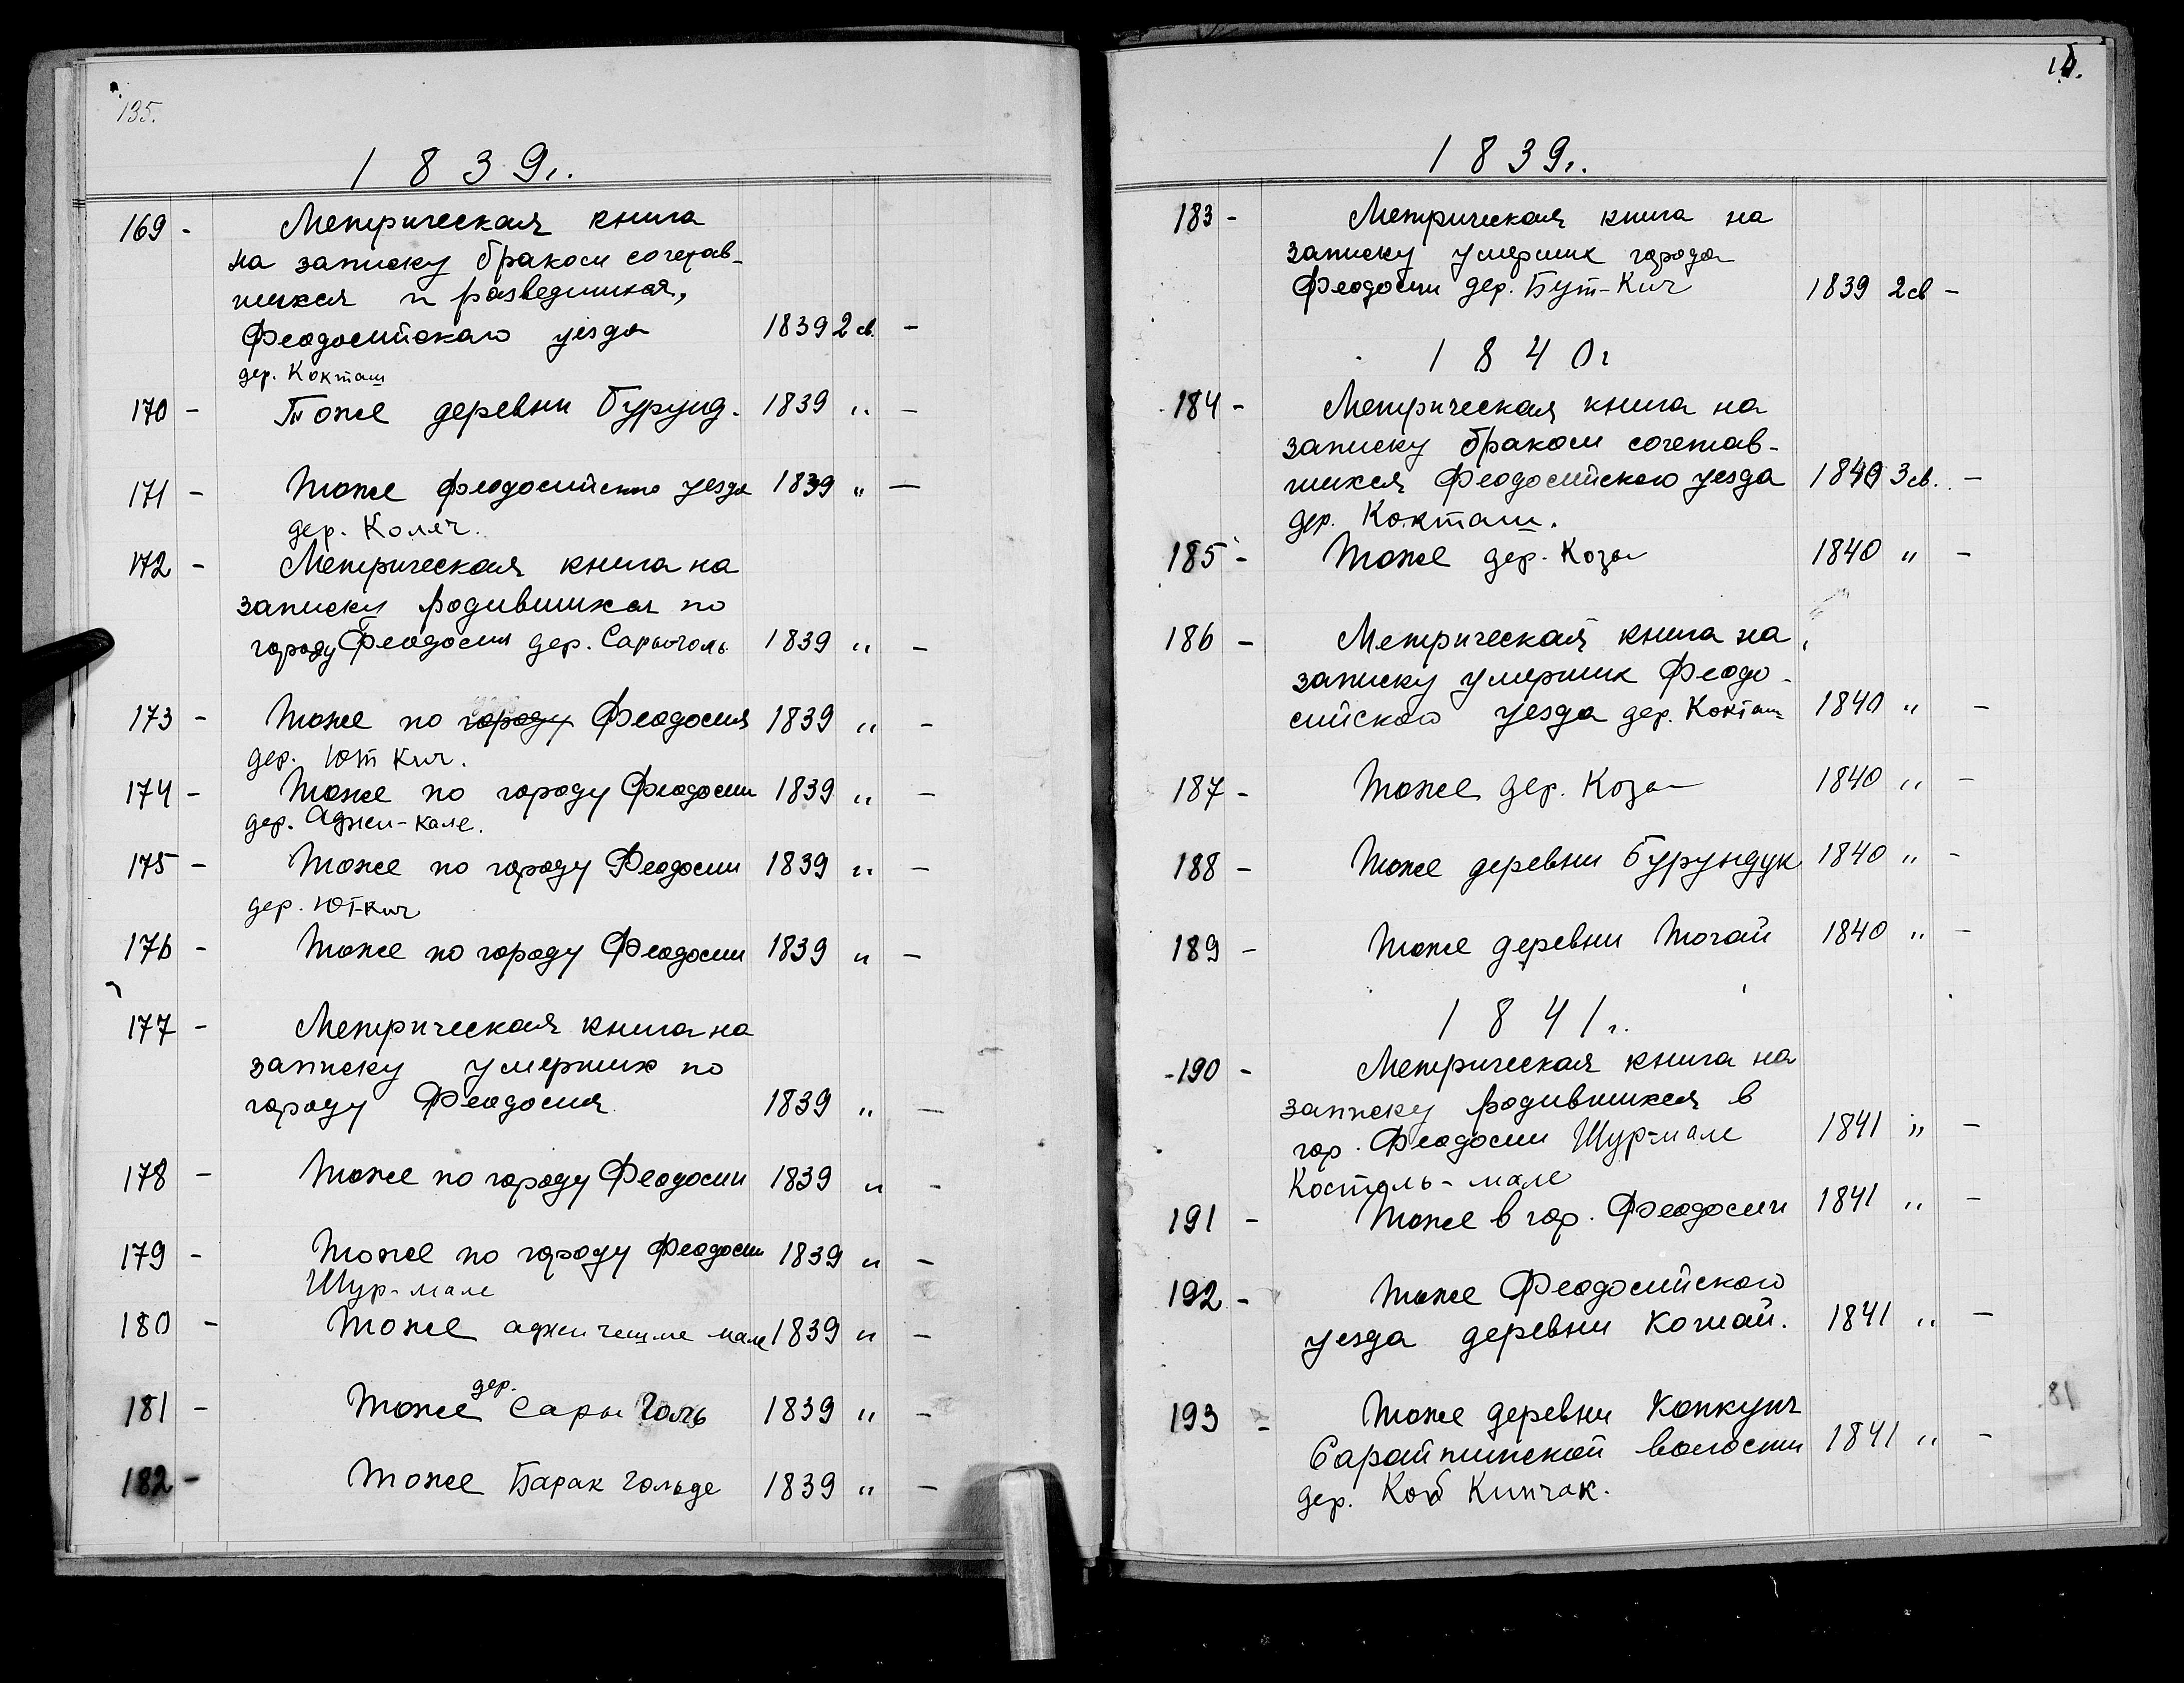 135.
1839г.
169 - Метрическая книга
на записку браком сочетав-
шихся и разведшихся,
Феодосийскаго уезда 1839 2 св. -
дер. Кокташ
170 - Тоже деревни Бурунд. 1839 " -
171 - Тоже феодосийскаго уезда 1839 " -
дер. Коляч.
172 - Метрическая книга на
записку родившихся по
городу Феодосии дер. Сарыголь 1839 " -
173 - Тоже по городу Феодосия 1839 " -
дер. Ют Кич.
174 - Тоже по городу Феодосии 1839 " -
дер. Аджи-кале.
175 - Тоже по городу Феодосии 1839 " -
дер. Ют-Кич
176 - Тоже по городу Феодосии 1839 " -
177 - Метрическая книга на
записку умерших по
городу Феодосия 1839 " -
178 - Тоже по городу Феодосии 1839 " -
179 - Тоже по городу Феодосии 1839 " -
Шур-мале
180 - Тоже аджи чешме мале 1839 " -
181 - Тоже дер. Сары Голь 1839 " -
182 - Тоже Барак Гольде 1839 " -
1839г.
183 - Метрическая книга на
записку умерших города
Феодосии дер. Бут-Кич 1839 2 св -
1840г
184 - Метрическая книга на
записку браком сочетав-
шихся Феодосийского уезда 1840 3 св. -
дер. Кокташ.
185 - Тоже дер. Козы 1840 " -
186 - Метрическая книга на
записку умерших Феодо-
сийского уезда дер. Кокташ 1840 " -
187 - Тоже дер. Козы 1840 " -
188 - Тоже деревни Бурундук 1840 " -
189 - Тоже деревни Тогай 1840 " -
1841г.
190 - Метрическая книга на
записку родившихся в
гор. Феодосии Шур-мале 1841 " -
Костель-мале
191 - Тоже в гор. Феодосии 1841 " -
192 - Тоже Феодосийского
уезда деревни Кошай. 1841 " -
193 - Тоже деревни Копкунч
Сарайминской волости 1841 " -
дер. Коб Кипчак.
81